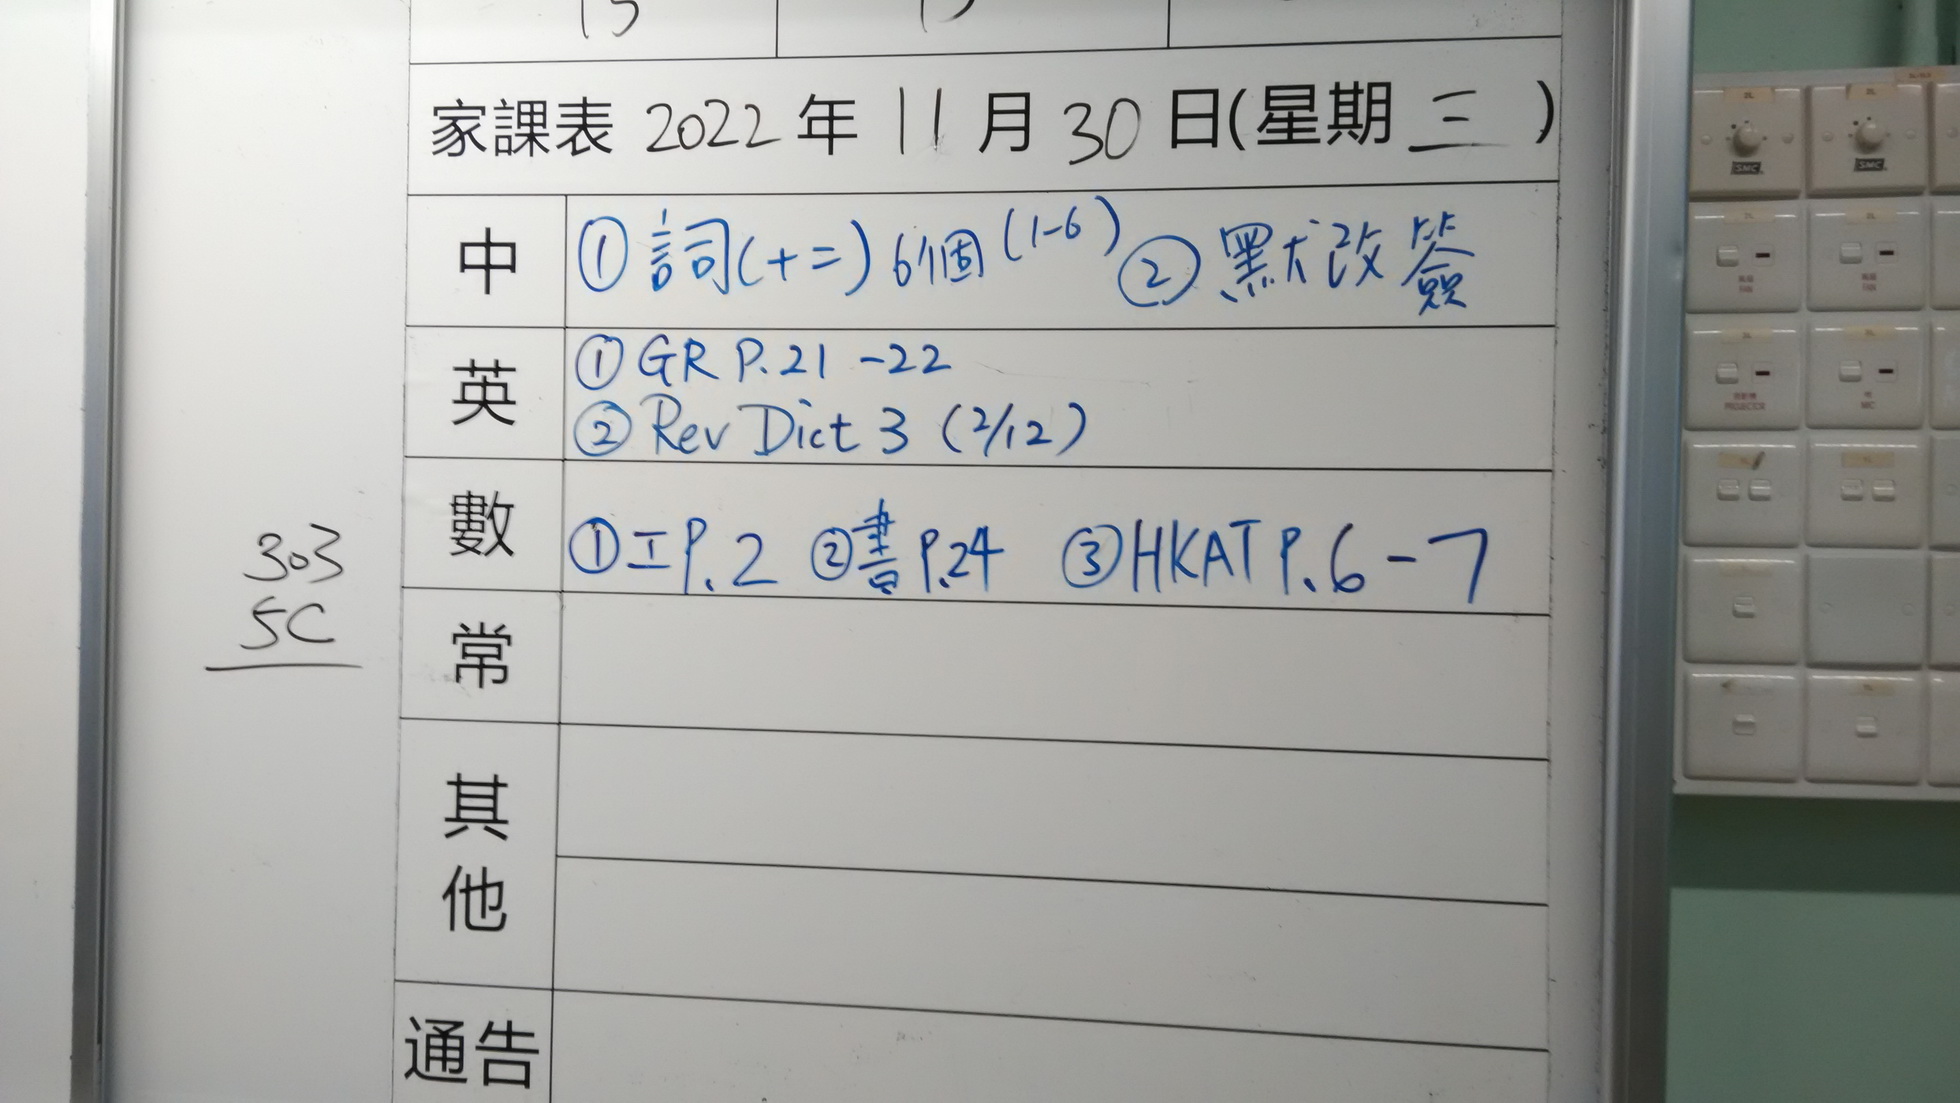 家課表 2022 年 11 月 30 日(星期 三 )
中 ① 詞(十二) 6個 (1-6) ② 默改簽
英 ① GR P.21 -22
② Rev Dict 3 (2/12)
數 ① 工 P.2 ② 書 P.24 ③ HKAT P.6-7
303
5C
常
其他
通告
SMC
SMC
FAN
FAN
PROJECTOR
MIC